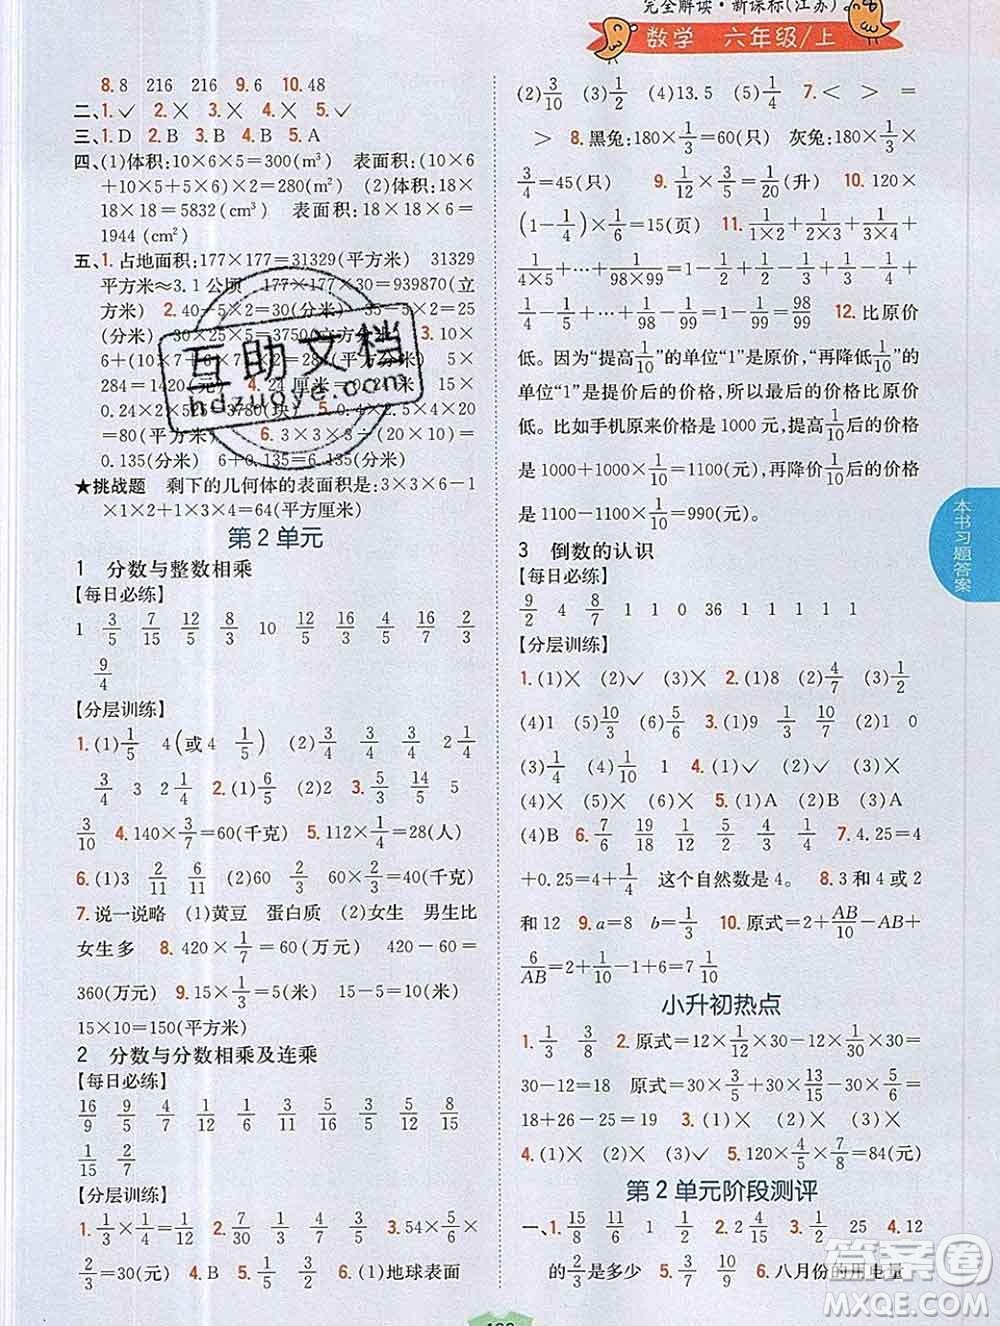 完全解读·新课标(江苏)
数学 六年级/上
8. 8 216 216 9. 6 10. 48
二、1. ✓ 2. × 3. × 4. × 5. ✓
三、1. D 2. B 3. B 4. B 5. A
四、(1)体积:10×6×5=300(m³) 表面积:(10×6
+10×5+5×6)×2=280(m²) (2)体积:18×
18×18=5832(cm³) 表面积:18×18×6=
1944(cm²)
五、1. 占地面积:177×177=31329(平方米) 31329
平方米≈3.1公顷 177×177×30=939870(立
方米) 2. 40-5×2=30(分米) 35-5×2=25
(分米) 30×25×5=3750(立方分米) 3. 10×
284=1420(元) 4. 24厘米=0.24米
=80(平方米)
0.135(分米) 6+0.135=6.135(分米)
★挑战题 剩下的几何体的表面积是:3×3×6-1
×1×2+1×3×4=64(平方厘米)
第2单元
1 分数与整数相乘
【每日必练】
1 3/5 7/15 12/5 8/3 10 12/5 16/3 14/5 16/7 2/3
9/4
【分层训练】
1. (1)1/5 4(或4 1/5) (2)3/4 3/4 3 2 1/4
3/4 3 2 1/4 2. (1)6/5 (2)3/2 3. 3/4 14/5 5
3/10 4. 140×3/7=60(千克) 5. 112×1/4=28(人)
6. (1)3 2/11 6/11 (2)60×2/3=40(千克)
7. 说一说略 (1)黄豆 蛋白质 (2)女生 男生比
女生多 8. 420×1/7=60(万元) 420-60=
360(万元) 9. 15×1/3=5(米) 15-5=10(米)
15×10=150(平方米)
2 分数与分数相乘及连乘
【每日必练】
16/9 9/5 4/5 1/3 1/6 3/2 1/3 2/3 9/2 5/4
1/15 2/27
【分层训练】
1. 1/3×1/4=1/12 2. 43 7/30 3/4 1/2 3. 54×5/6×
2/3=30(元) 4. A 5. > < = 6. (1)地球表面
(2)3/10 (3)1/2 (4)13.5 (5)1/4 7. < > =
> 8. 黑兔:180×1/3=60(只) 灰兔:180×1/3×
3/4=45(只) 9. 1/12×3/5=1/20(升) 10. 120×
(1-1/4)×1/6=15(页) 11. 1/1×2+1/2×3+1/3×4+
1/4×5+…+1/98×99=1-1/2+1/2-1/3+1/3-1/4+1/4
-1/5+…+1/98-1/99=1-1/99=98/99 12. 比原价
低。因为“提高1/10”的单位“1”是原价,“再降低1/10”的
单位“1”是提价后的价格,所以最后的价格比原价
低。比如手机原来价格是1000元,提价1/10后的价格
是1000+1000×1/10=1100(元),再降价1/10后的价格
是1100-1100×1/10=990(元)。
3 倒数的认识
【每日必练】
9/2 4 8/7 1 1 0 36 1 1 1 1 1
【分层训练】
1. (1)× (2)✓ (3)× 2. (1)8 (2)4/7 (3)1/2
(4)1 (5)10/3 (6)5/6 3. (1)9 1/3 10/7 (2)1 0
(3)1/4 1/12 4. (1)× (2)✓ (3)✓ (4)×
(5)× (6)× (7)✓ 5. (1)A (2)B (3)B
(4)B 6. 7/6 19/18 1/12 1/2 1/4 5/3 7. 4.25=4
+0.25=4+1/4 这个自然数是4。 8. 3和4或2
和12 9. a=8 b=1/8 10. 原式=2+AB/10-AB/10+
6/AB=2+6/10=2 3/5
小升初热点
1. 1/3 3/8 2. 原式=12×1/12×30-12×1/30×30=
30-12=18 原式=30×3/5+30×13/15-5/6×30=
18+26-25=19 3. (1)× (2)× (3)×
4. (1)× (2)× (3)✓ 5. 120×4/5×7/8=84(元)
第2单元阶段测评
一、1. 15/8 8/11 1 1/2 2. 2 7/50 3. 1/2 25 4. 12
的2/3是多少 5. 27/4 6. 八月份的用电量
本书习题答案
互助文档
hdzuoye.com
答案圈
MXQE.COM